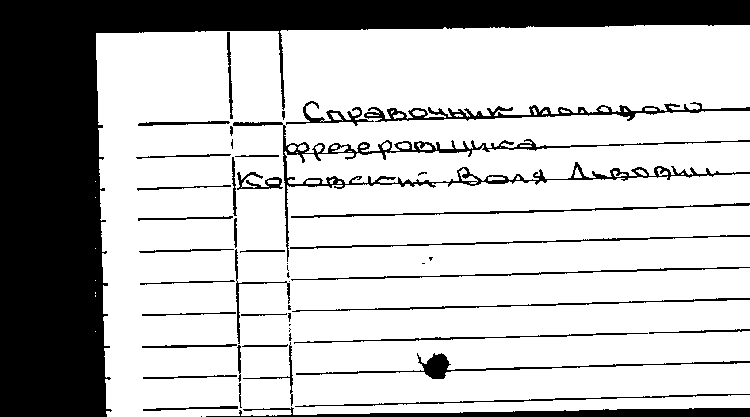 Справочник молодого
фрезеровщика
Косовский, Воля Львович